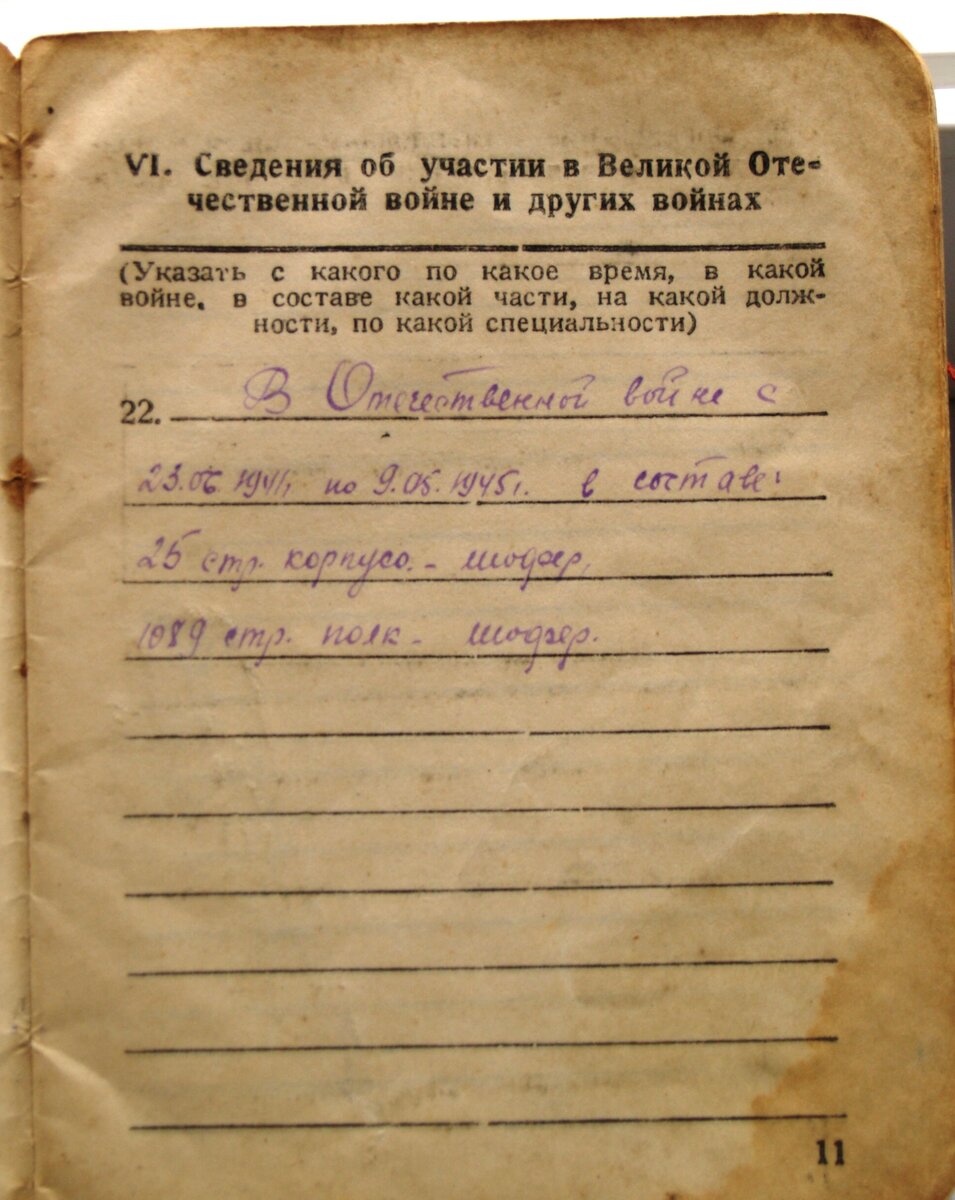 VI. Сведения об участии в Великой Оте-
чественной войне и других войнах
(Указать с какого по какое время, в какой
войне, в составе какой части, на какой долж-
ности, по какой специальности)
22. В Отечественной войне с
23.06 1941г по 9.05.1945г. в составе:
25 стр. корпуса. - шофер,
1089 стр. полк - шофер.
11